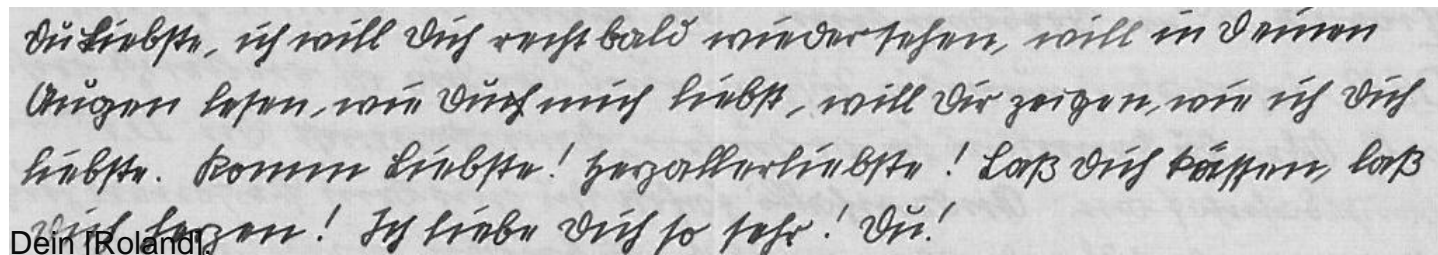 Du Liebste, ich will Dich recht bald wiedersehen, will in Deinen
Augen lesen, wie Du mich liebst, will Dir zeigen, wie ich Dich
liebste. Komm Liebste! Herzallerliebste! Laß Dich küssen, laß
Dich herzen! Ich liebe Dich so sehr! Du!
Dein [Roland].